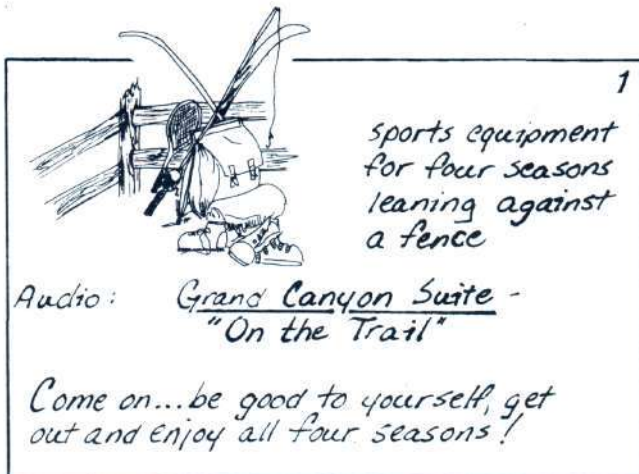 1
sports equipment
for four seasons
leaning against
a fence
Audio: Grand Canyon Suite -
"On the Trail"
Come on...be good to yourself, get
out and enjoy all four seasons!